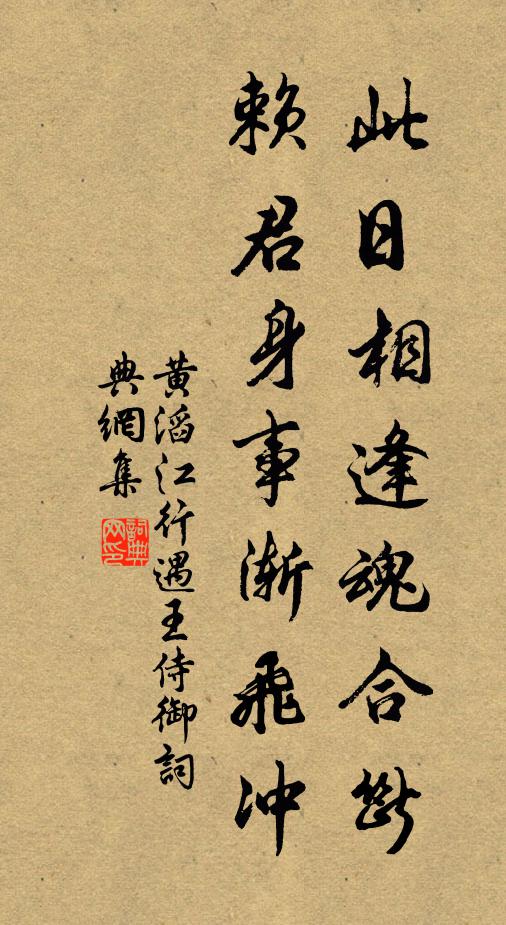 此日相逢魂合斷
賴君身事漸飛沖
黃滔江行遇王侍御詞
典網集
詞典網印